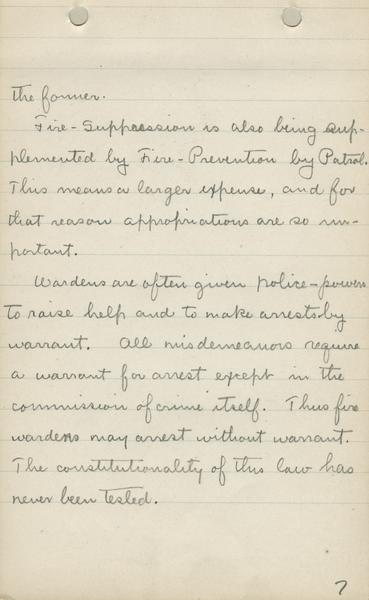 the former.
Fire-Suppression is also being sup-
plemented by Fire-Prevention by Patrol.
This means a larger expense, and for
that reason appropriations are so im-
portant.
Wardens are often given police-powers
to raise help and to make arrests by
warrant. All misdemeanors require
a warrant for arrest except in the
commission of crime itself. Thus fire
wardens may arrest without warrant.
The constitutionality of this law has
never been tested.
7